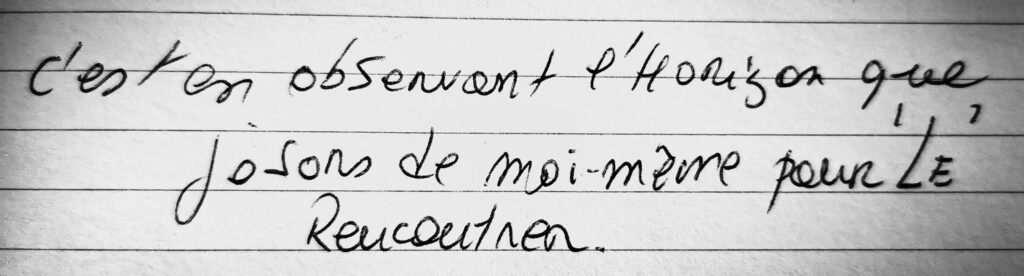 c'est en observant l'Horizon que
je sors de moi-même pour 'LE'
Rencontrer.